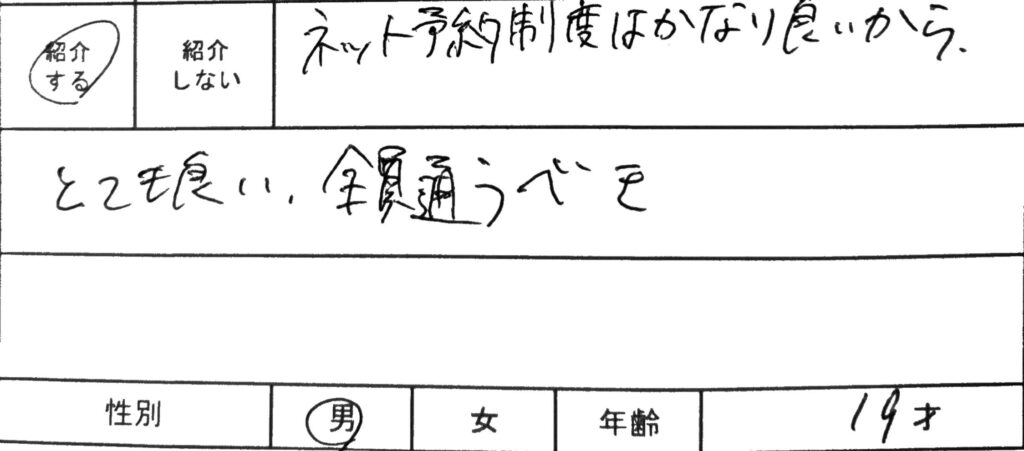 紹介 紹介 ネット予約制度はかなり良いから.
する しない
とても良い、全員通うべき
性別 男 女 年齢 19才